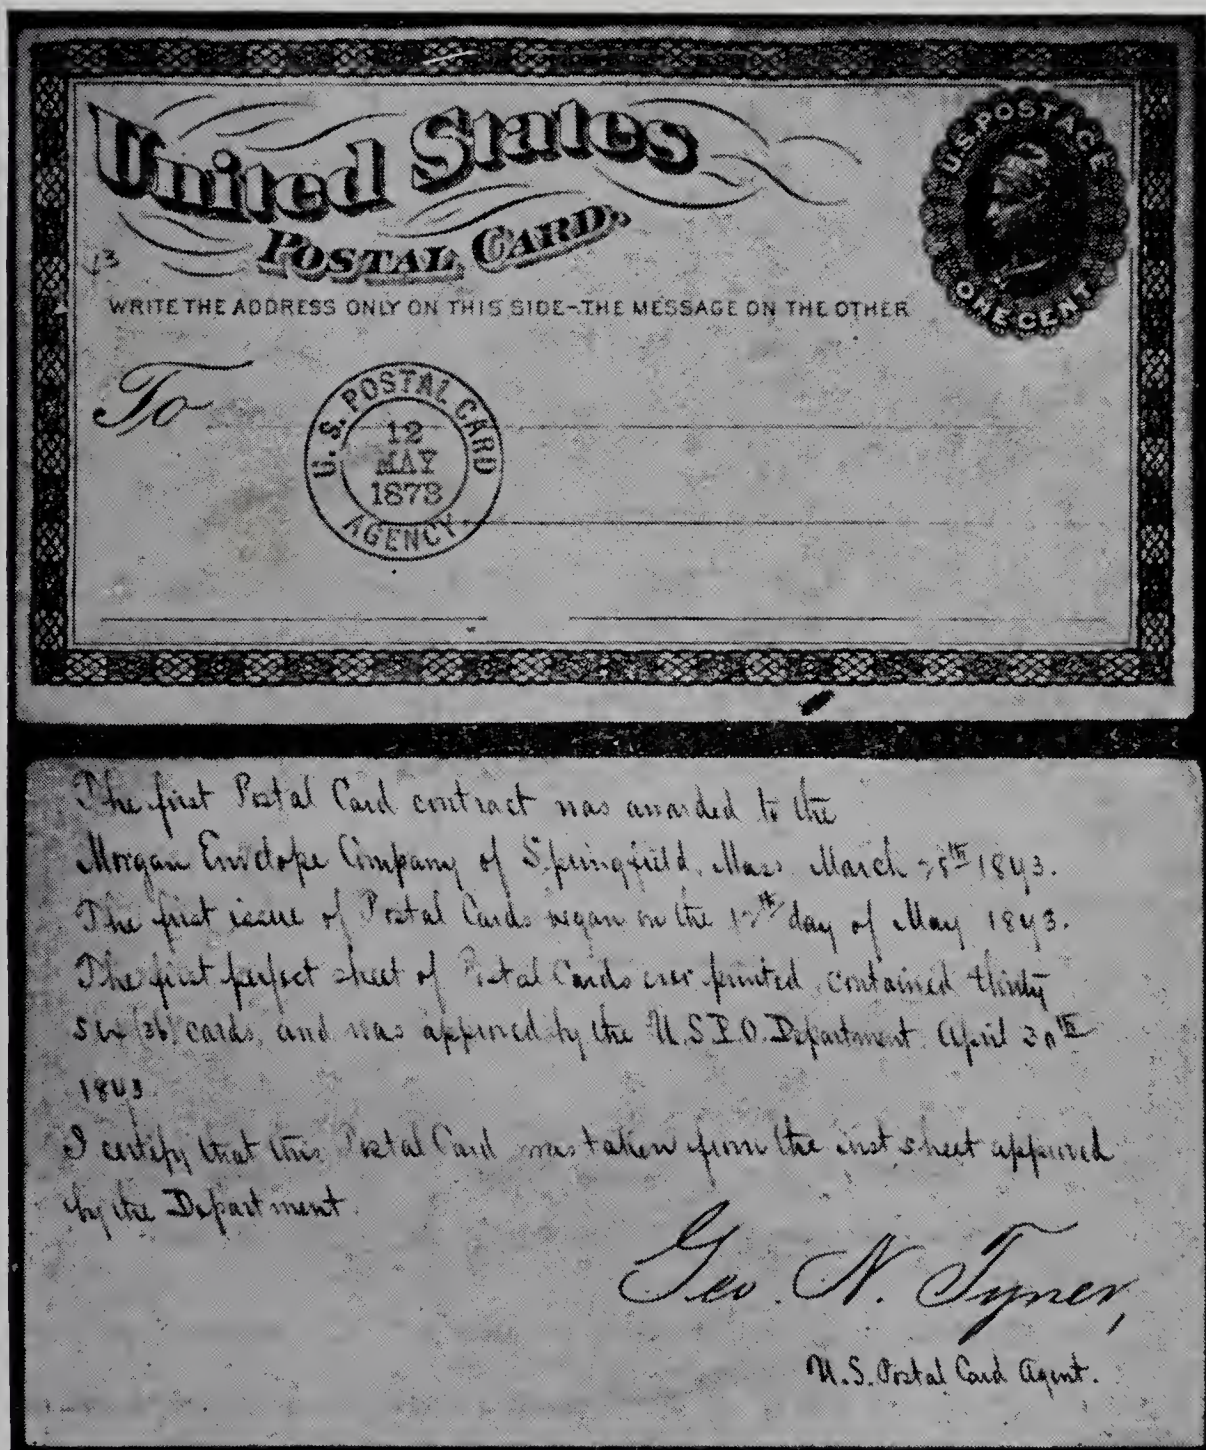 United States
POSTAL CARD.
U.S. POSTAGE
ONE CENT
WRITE THE ADDRESS ONLY ON THIS SIDE-THE MESSAGE ON THE OTHER
To
U. S. POSTAL CARD
12
MAY
1873
AGENCY.
The first Postal Card contract was awarded to the
Morgan Envelope Company of Springfield, Mass. March 1873.
The first issue of Postal Cards began on the 12th day of May 1873.
The first perfect sheet of Postal Cards ever printed, contained thirty
six (36) cards, and was approved by the U.S.P.O. Department April 30th
1873.
I certify that this Postal Card was taken from the first sheet approved
by the Department.
Geo. N. Tyner,
U.S. Postal Card Agent.